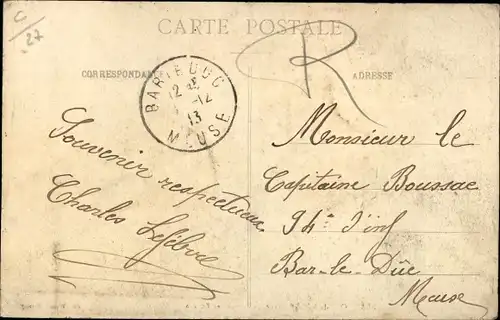 U/27
CARTE POSTALE
R
CORRESPONDANCE
ADRESSE
BAR-LE-DUC
12
-12
13
MEUSE
Souvenir respectueux
Charles Lefebvre
Monsieur le
Capitaine Boussac
94e d'inf
Bar-le-Dûc
Meuse